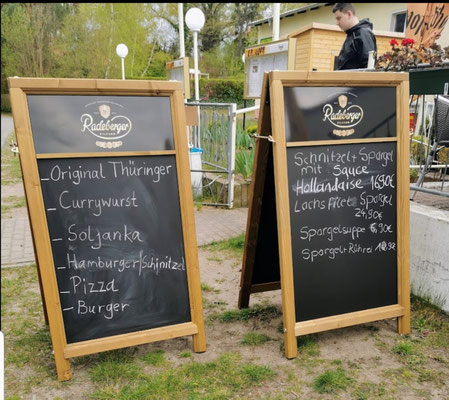 Radeberger
PILSNER
- Original Thüringer
- Currywurst
- Soljanka
- Hamburger/Schnitzel
- Pizza
- Burger
Radeberger
PILSNER
Schnitzel + Spargel
mit Sauce
Hollandaise 16,90€
Lachsfilet Spargel
24,90€
Spargelsuppe 6,90€
Spargel + Rührei